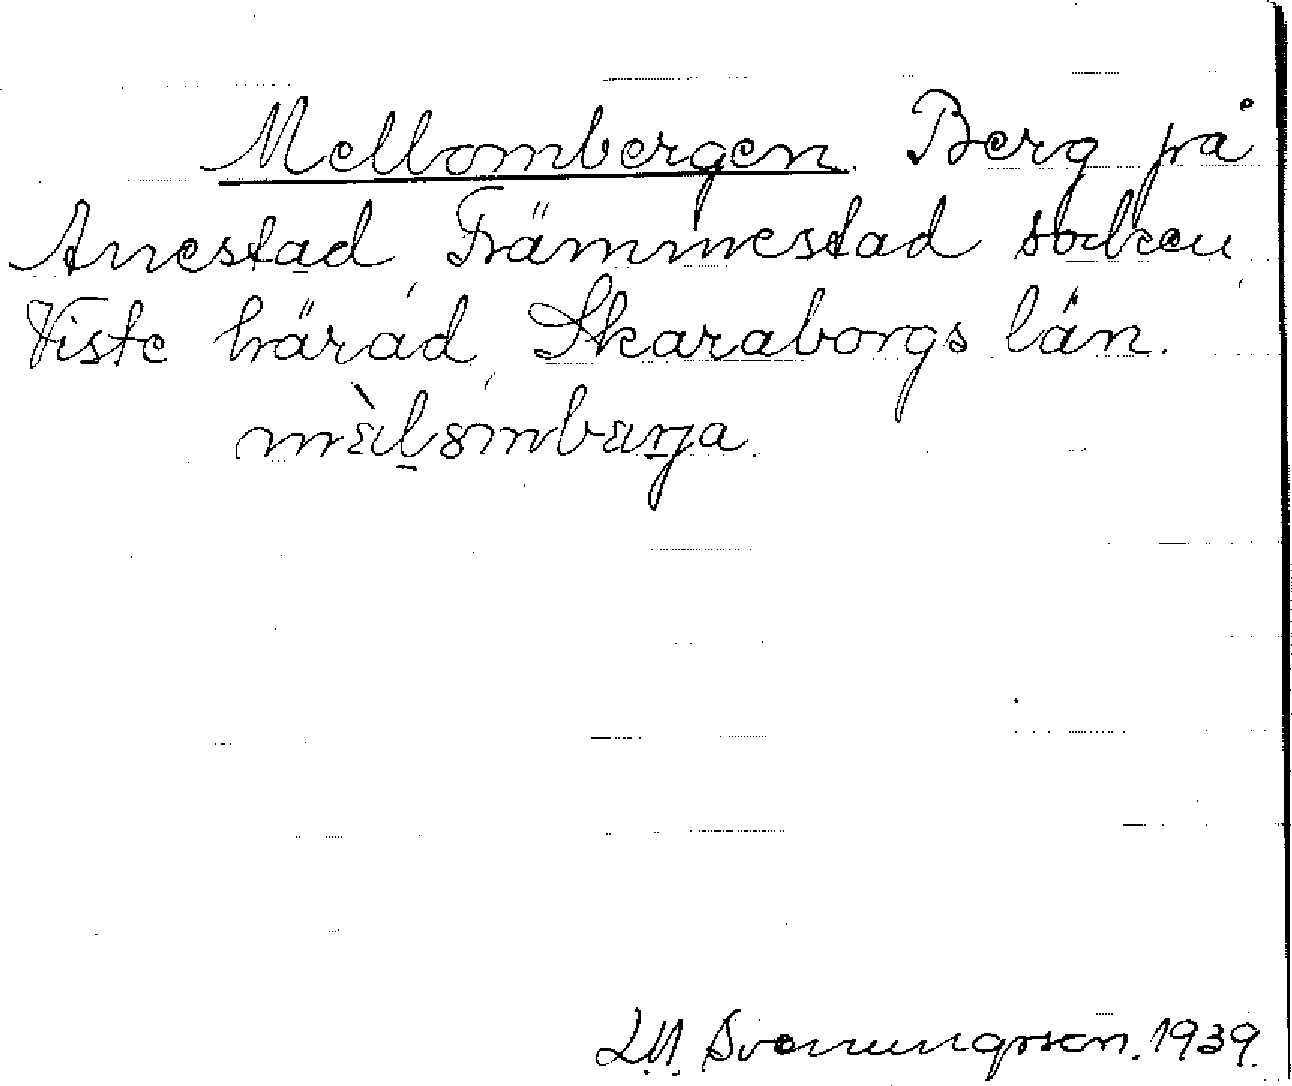 Mellombergen. Berg på
Anestad, Främmestad socken,
Viste härad, Skaraborgs län.
mèlombærja.
Svenungsson. 1939.